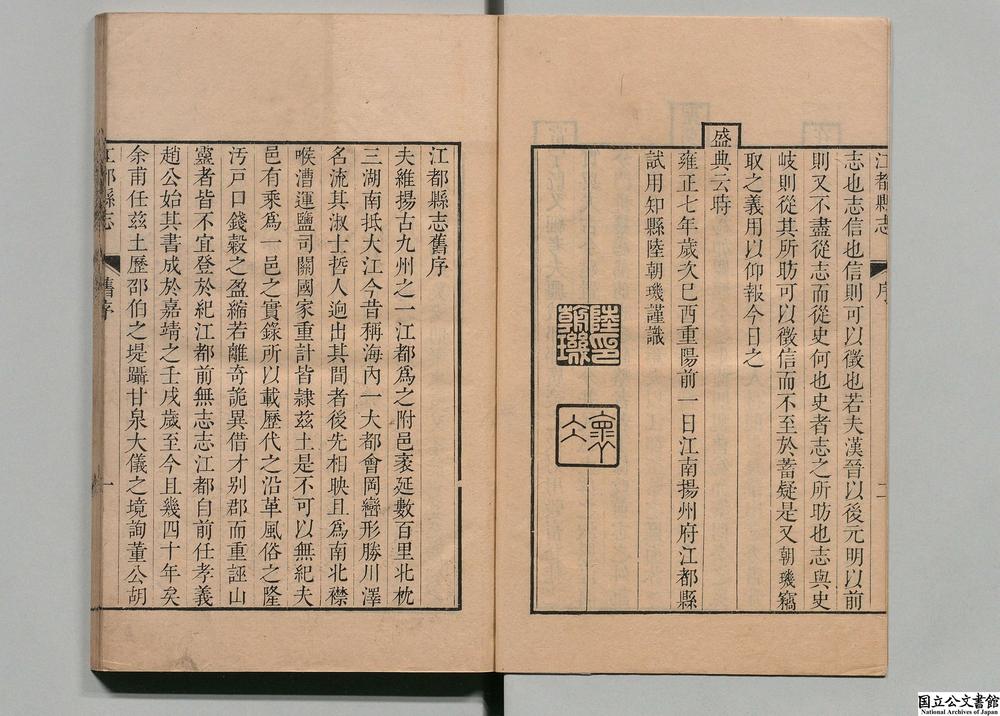 江都縣志 序 二
志也志信也信則可以徵也若夫漢晉以後元明以前
則又不盡從志而從史何也史者志之所昉也志與史
岐則從其所昉可以徵信而不至於蓄疑是又朝璣竊
取之義用以仰報今日之
盛典云時
雍正七年歲次己酉重陽前一日江南揚州府江都縣
試用知縣陸朝璣謹識
陸印朝璣
江都縣志舊序
夫維揚古九州之一江都爲之附邑袤延數百里北枕
三湖南抵大江今昔稱海內一大都會岡巒形勝川澤
名流其淑士哲人迥出其間者後先相映且爲南北襟
喉漕運鹽司關國家重計皆隷茲土是不可以無紀夫
邑有乘爲一邑之實錄所以載歷代之沿革風俗之隆
汚戸口錢穀之盈縮若離奇詭異借才别郡而重誣山
靈者皆不宜登於紀江都前無志志江都自前任孝義
趙公始其書成於嘉靖之壬戌歲至今且幾四十年矣
余甫任茲土歷邵伯之堤躡甘泉大儀之境詢董公胡
江都縣志 舊序 一
国立公文書館
National Archives of Japan